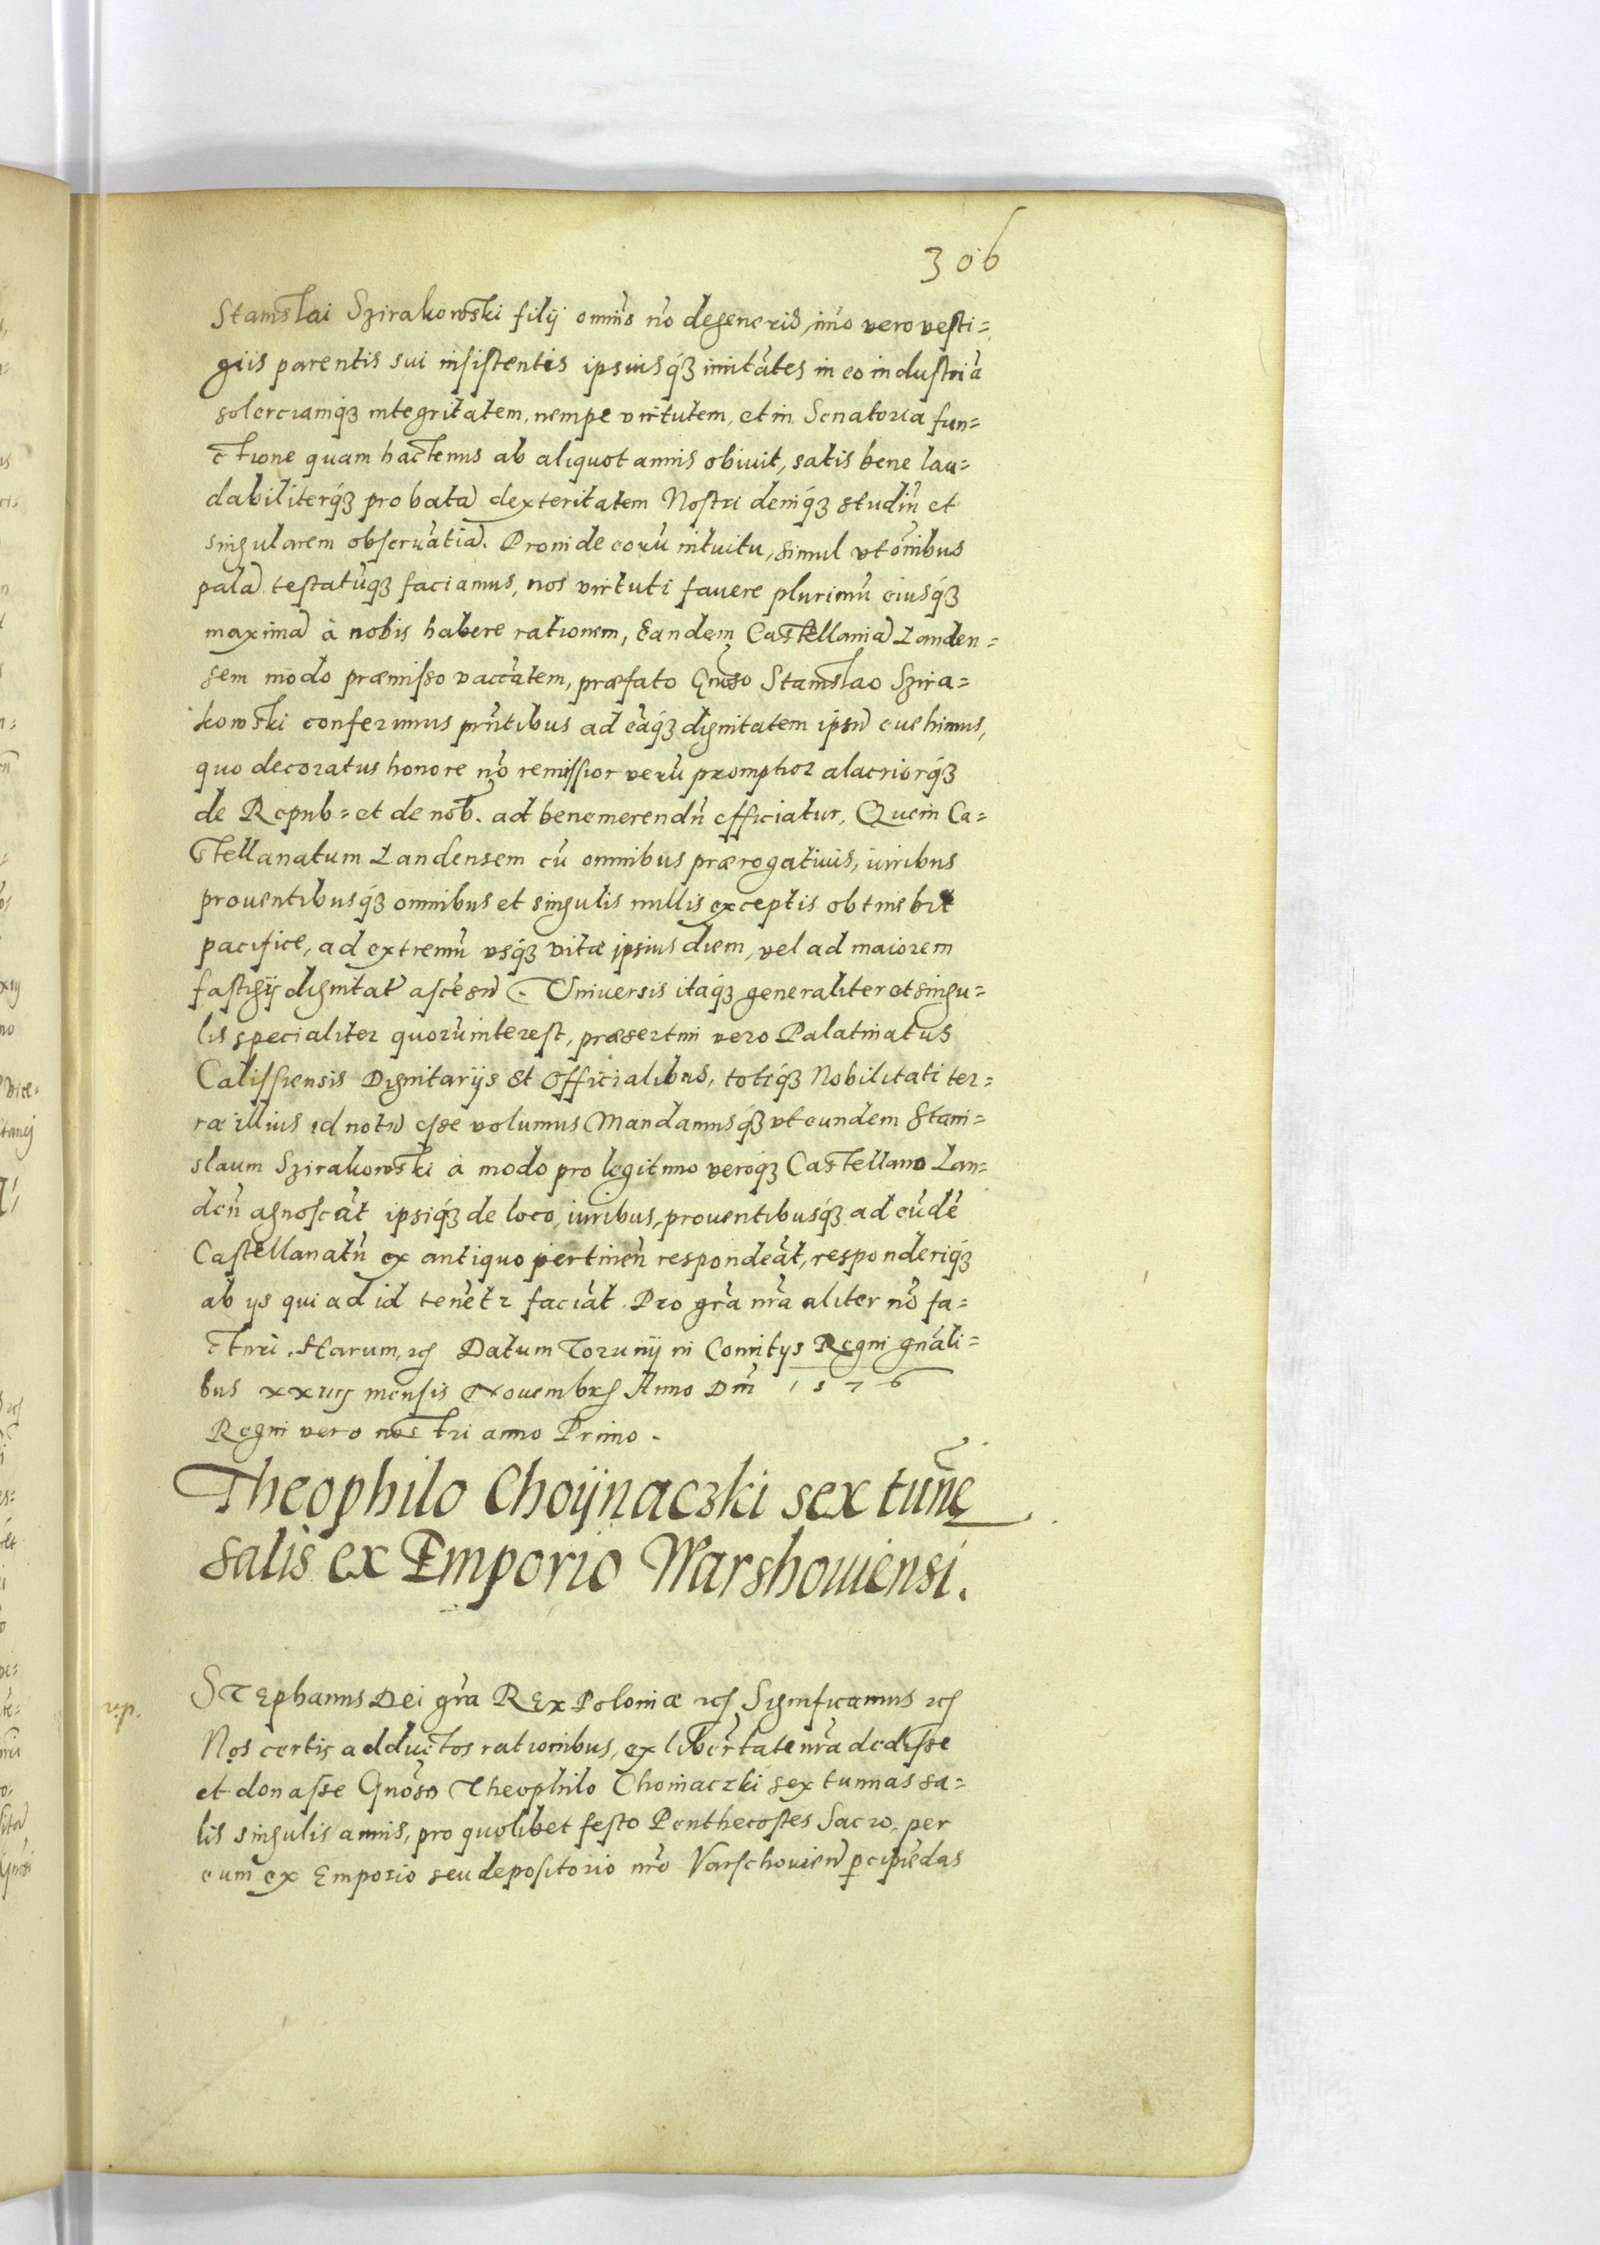 306
Stanislai Szirakowski filij omnis nō degeneris, imo vero vesti=
giis parentis sui insistentis ipsiusq3 imitātes in eo industriā
solerciamq3 integritatem, nempe virtutem, et in Senatoria fun=
ctione quam hactenus ab aliquot annis obiuit, satis bene lau=
dabiliterq3 probatā dexteritatem Nostri deniq3 studiū et
singularem obseruātiā. Proinde eorū intuitu, simul vt oībus
palā testatūq3 faciamus, nos virtuti fauere plurimū eiusq3
maximā à nobis habere rationem, Eandem Castellaniā Landen=
sem modo præmisso vaccātem, præfato Gnōso Stanislao Szira=
kowski conferimus pñtibus ad eāq3 dignitatem ipsū euehimus,
quo decoratus honore nō remissior verū promptior alacriorq3
de Repub= et de nob. ad benemerendū efficiatur, Quem Ca=
stellanatum Landensem cū omnibus prærogatiuis, iuribus
prouentibusq3 omnibus et singulis nullis exceptis obtinebit
pacifice, ad extremū vsq3 vitæ ipsius diem, vel ad maiorem
fastigij dignitat ascēsū. Vniuersis itaq3 generaliter et singu=
lis specialiter quorū interest, præsertim vero Palatinatus
Calissiensis Dignitarijs et Officialibus, totiq3 Nobilitati ter=
ræ illius id notū esse volumus Mandamusq3 vt eundem Stani=
slaum Szirakowski à modo pro legitimo veroq3 Castellano Lan=
deñ agnoscāt ipsiq3 de loco, iuribus, prouentibusq3 ad eūdē
Castellanatū ex antiquo pertineñ respondeāt, responderiq3
ab ijs qui ad id tenētr faciāt. Pro gr̃a nr̃a aliter nō fa=
cturi. Harum, etc Datum Torunij in Comitijs Regni gnāli=
bus mensis Nouembris Anno Dñi 1576
Regni vero nostri anno Primo.
Theophilo Choijnaczki sex tuñ
salis ex Emporio Warshouiensi.
Stephanus Dei gr̃a Rex Poloniæ etc Significamus etc
Nos certis adductos rationibus, ex libertate nr̃a dedisse
et donasse Gnōso Theophilo Choinaczki sex tunnas sa=
lis singulis annis, pro quolibet festo Penthecostes Sacro, per
eum ex Emporio seu depositorio nr̃o Varschouieñ pcipiēdas